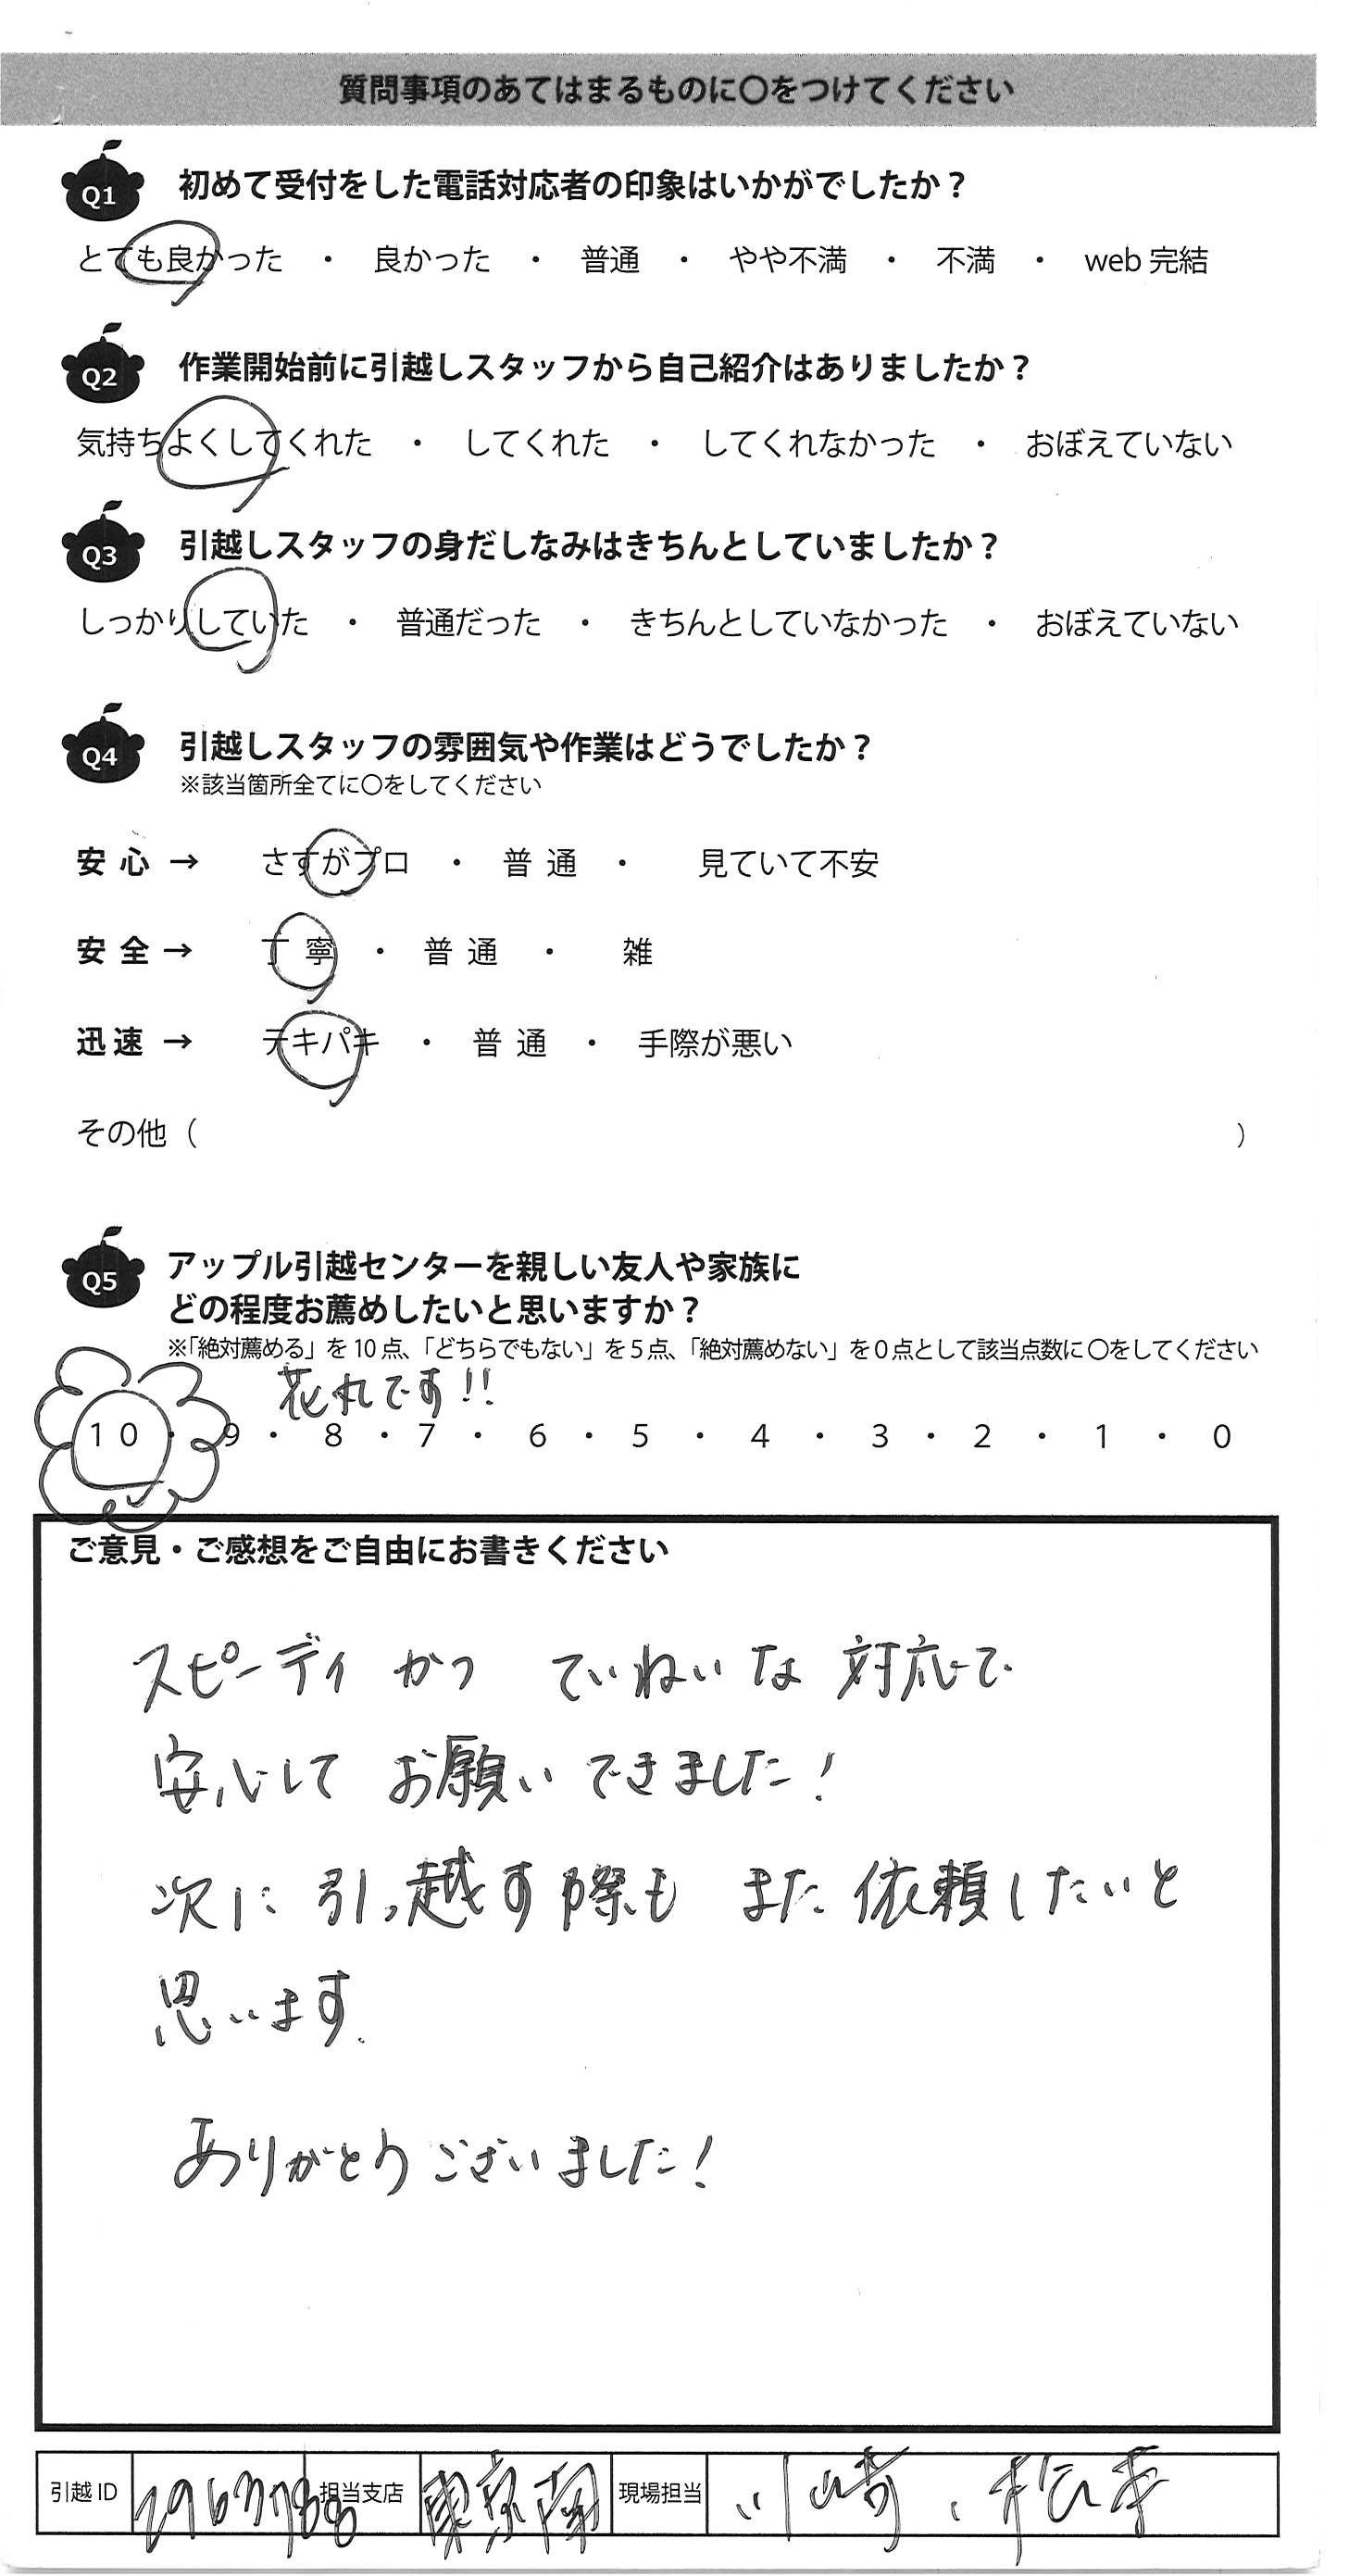 質問事項のあてはまるものに〇をつけてください
Q1 初めて受付をした電話対応者の印象はいかがでしたか？
とても良かった ・ 良かった ・ 普通 ・ やや不満 ・ 不満 ・ web 完結
Q2 作業開始前に引越しスタッフから自己紹介はありましたか？
気持ちよくしてくれた ・ してくれた ・ してくれなかった ・ おぼえていない
Q3 引越しスタッフの身だしなみはきちんとしていましたか？
しっかりしていた ・ 普通だった ・ きちんとしていなかった ・ おぼえていない
Q4 引越しスタッフの雰囲気や作業はどうでしたか？
※該当箇所全てに〇をしてください
安心 → さすがプロ ・ 普通 ・ 見ていて不安
安全 → 丁寧 ・ 普通 ・ 雑
迅速 → テキパキ ・ 普通 ・ 手際が悪い
その他（ ）
Q5 アップル引越センターを親しい友人や家族に
どの程度お薦めしたいと思いますか？
※「絶対薦める」を 10 点、「どちらでもない」を 5 点、「絶対薦めない」を 0 点として該当点数に 〇をしてください
花丸です!!
10 ・ 9 ・ 8 ・ 7 ・ 6 ・ 5 ・ 4 ・ 3 ・ 2 ・ 1 ・ 0
ご意見・ご感想をご自由にお書きください
スピーディ かつ ていねいな 対応で
安心して お願い できました!
次に 引っ越す際も また 依頼したいと
思います.
ありがとうございました!
引越 ID 担当支店 東京南 現場担当 川崎、